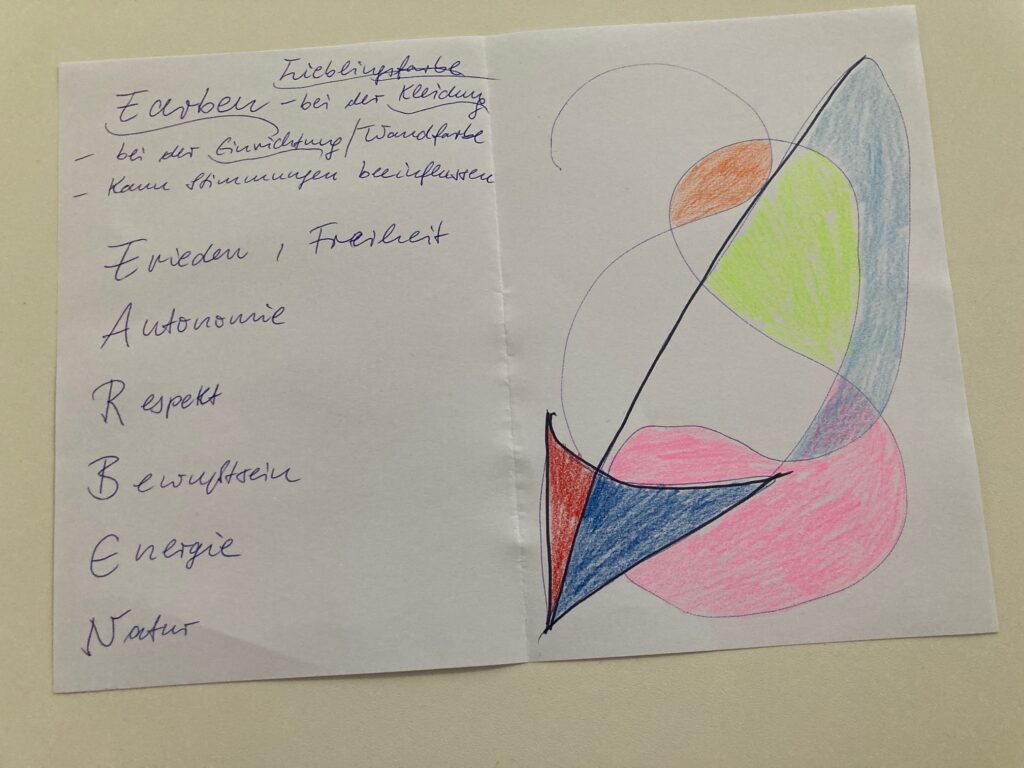 Lieblingsfarbe
Farben - bei der Kleidung
- bei der Einrichtung/Wandfarbe
- Kann Stimmungen beeinflussen
Frieden, Freiheit
Autonomie
Respekt
Bewußtsein
Energie
Natur